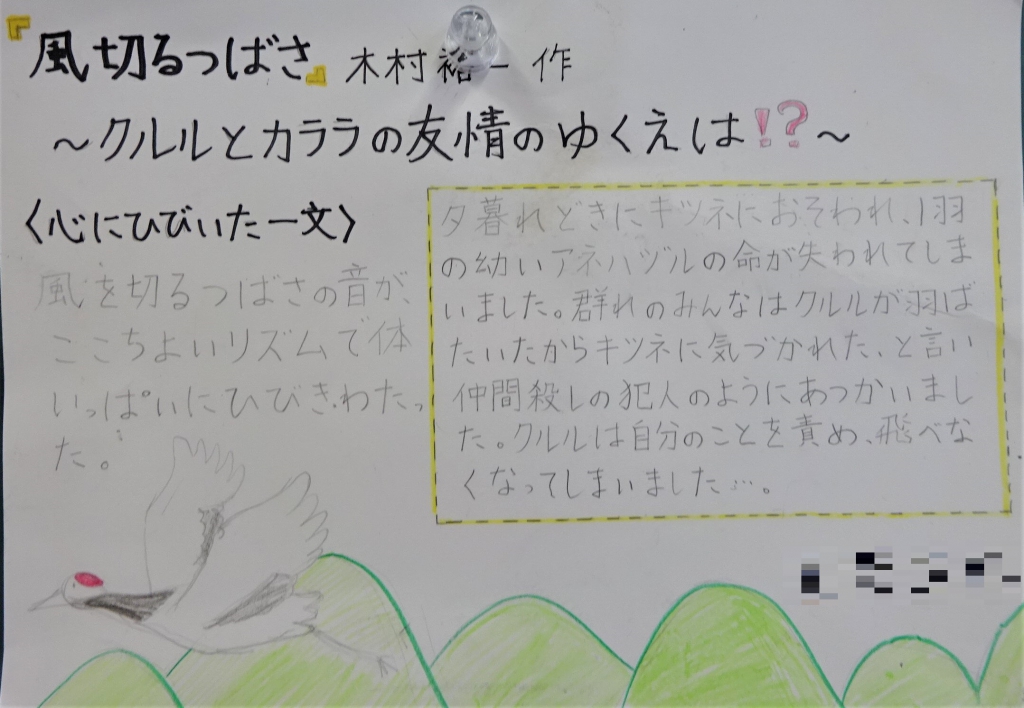 『風切るつばさ』 木村裕一 作
～クルルとカララの友情のゆくえは!?～
〈心にひびいた一文〉
風を切るつばさの音が、
ここちよいリズムで体
いっぱいにひびきわたっ
た。
夕暮れどきにキツネにおそわれ、1羽
の幼いアネハヅルの命が失われてしま
いました。群れのみんなはクルルが羽ば
たいたからキツネに気づかれた、と言い
仲間殺しの犯人のようにあつかいまし
た。クルルは自分のことを責め、飛べな
くなってしまいました…。